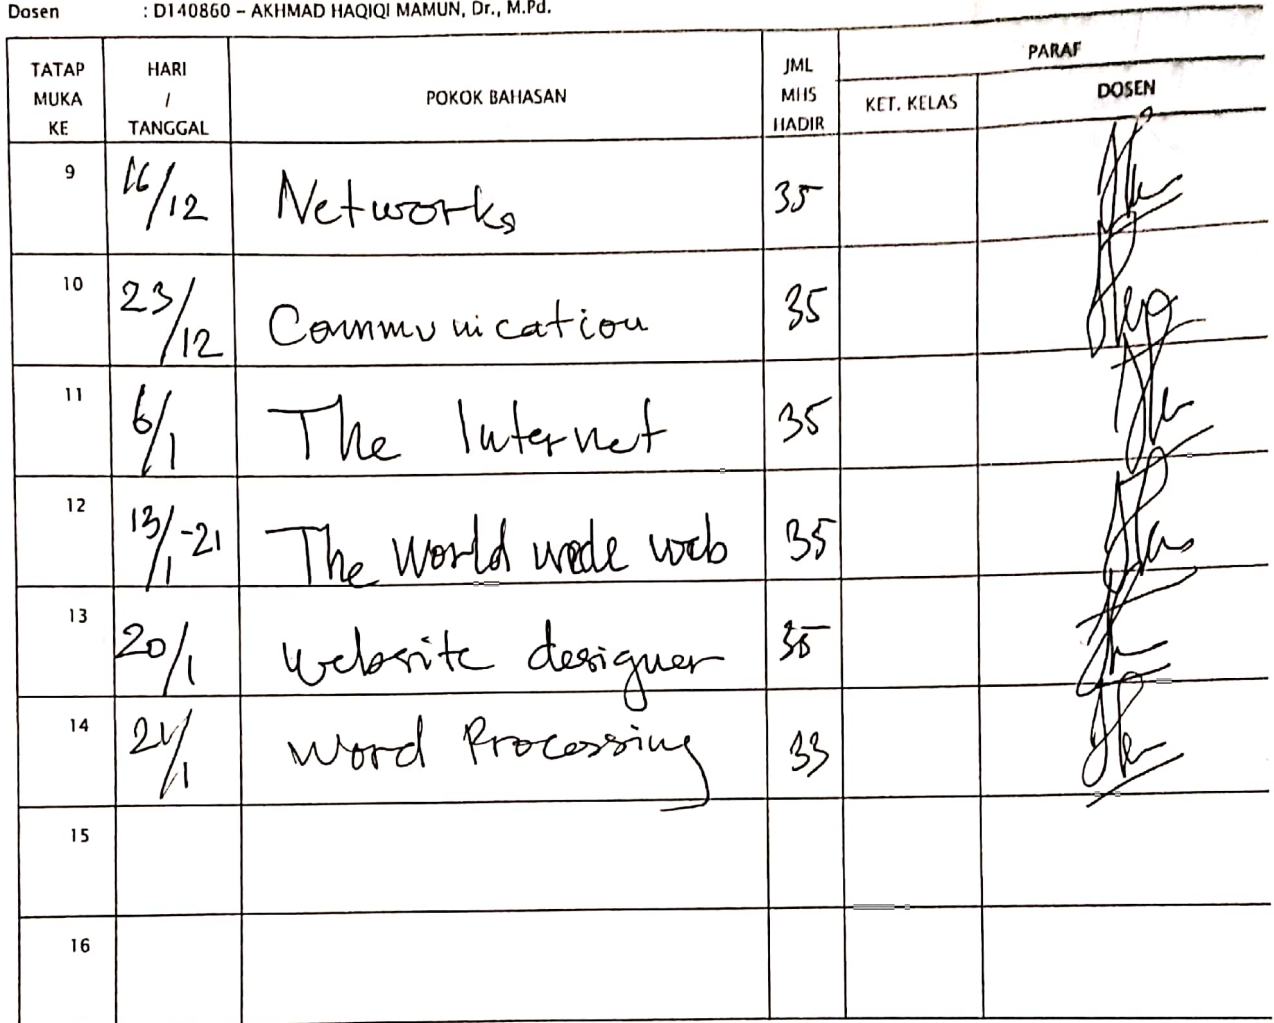 Dosen : D140860 – AKHMAD HAQIQI MAMUN, Dr., M.Pd.
TATAP MUKA KE HARI / TANGGAL POKOK BAHASAN JML MHS HADIR PARAF
KET. KELAS DOSEN
9 16/12 Networks 35
10 23/12 Communication 35
11 6/1 The Internet 35
12 13/1-21 The World wide web 35
13 20/1 website designer 35
14 /1 Word Processing 33
15
16